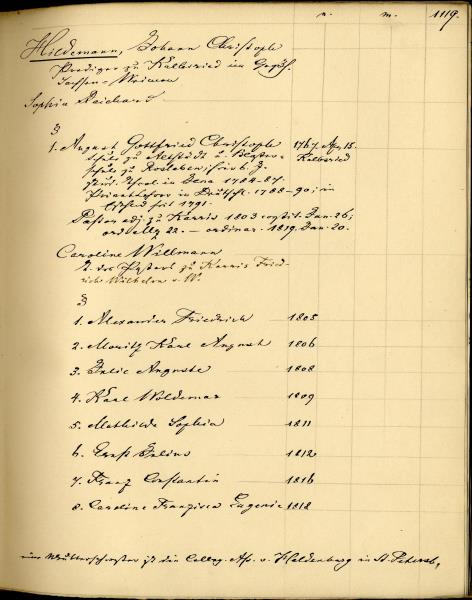 n. m. 1119.
Hildemann, Johann Christoph
Prediger zu Kalbsried im Großh.
Sachsen-Weimar
Sophia Reichard
§
1. August Gottfried Christoph 1767. Apr. 15.
Schule zu Altstädt u. Kloster- Kalbsried
schule zu Rosleben;
Theol. in Jena 1784-87.
Privatlehrer in Deutschl. 1788-90; in
Estland seit 1791.
Pastor adj. zu Karris 1803 Jan. 26;
22. — ordinar. 1819. Jan. 20.
Caroline Willmann
T. des Pastors zu Karris Fried-
rich Wilhelm v. W.
§
1. Alexander Friedrich 1805
2. Moritz Karl August 1806
3. Julie Auguste 1808
4. Karl Woldemar 1809
5. Mathilde Sophia 1811
6. Ernst Julius 1812
7. Franz Constantin 1816
8. Caroline Franzisca Eugenie 1818
Mutterschwester ist die Colleg. Ass. v. Haldenberg in St. Petersb.